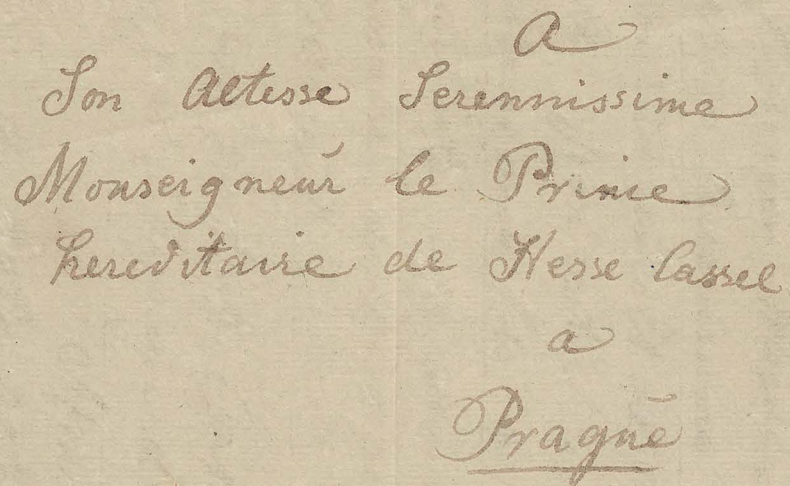 A
Son Altesse Serennissime
Monseigneur le Prince
hereditaire de Hesse Cassel
a
Prague